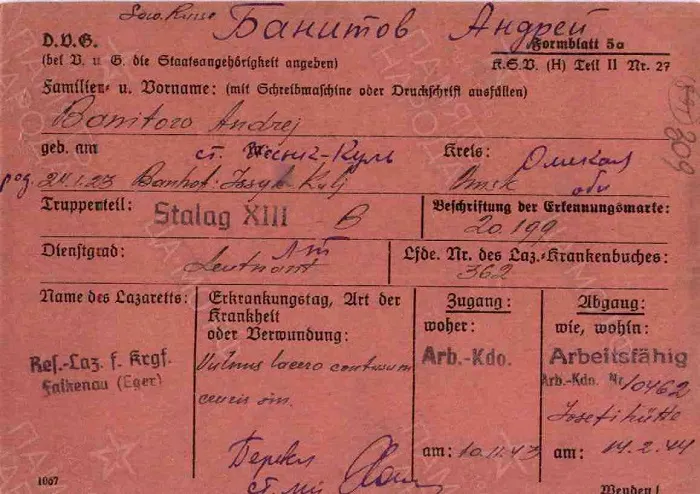 Sow. Russe Банитов Андрей
D.V.G. Formblatt 5a
(bei V. u G. die Staatsangehörigkeit angeben) K.S.V. (H) Teil II Nr. 27
Familien- u. Vorname: (mit Schreibmaschine oder Druckschrift ausfüllen)
Banitow Andrej
809
geb. am ст. Иссык-Куль Kreis: Омская
род. 24.1.23 Banhof: Issyk-Kulj Omsk обл
Truppenteil: Stalag XIII B Beschriftung der Erkennungsmarke:
20.199
Dienstgrad: Лт Lfde. Nr. des Laz.-Krankenbuches:
Leutnant 362
Name des Lazaretts: Erkrankungstag, Art der Krankheit oder Verwundung: Zugang: Abgang:
woher: wie, wohin:
Res.-Laz. f. Krgf. Arb.-Kdo. Arbeitsfähig
Falkenau (Eger) Vulnus lacero contusum Arb.-Kdo. Nr. 10462
cruris sin. Josefihütte
Перевел am: 10.11.43 am: 14.2.44
1067 Wenden!